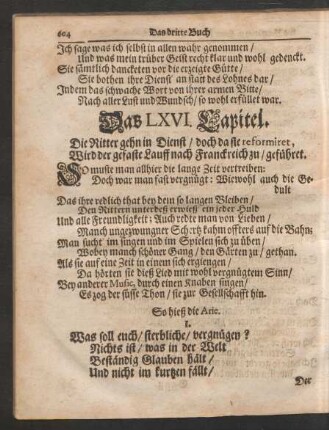 604 Das dritte Buch
Ich sage was ich selbst in allen wahr genommen/
Und was mein trüber Geist recht klar und wohl gedenckt.
Sie sämtlich danckten vor die erzeigte Gütte/
Sie bothen ihre Dienst' an statt des Lohnes dar/
Indem das schwache Wort von ihrer armen Bitte/
Nach aller Lust und Wundsch/ so wohl erfüllet war.
Das LXVI. Capitel.
Die Ritter gehn in Dienst/ doch da sie reformiret,
Wird der gefaste Lauff nach Franckreich zu/ geführet.
SO muste man allhier die lange Zeit vertreiben:
Doch war man fast vergnügt: Wiewohl auch die Ge-
dult
Das ihre redlich that bey dem so langen Bleiben/
Den Rittern unterdeß erwieß ein jeder Huld
Und alle Freundligkeit: Auch redte man von Lieben/
Manch ungezwungner Schertz kahm offters auf die Bahn:
Man sucht im singen und im Spielen sich zu üben/
Wobey manch schöner Gang/ den Gärten zu/ gethan.
Als sie auf eine Zeit in einen sich ergiengen/
Da hörten sie dieß Lied mit wohl vergnügtem Sinn/
Bey anderer Music, durch einen Knaben singen/
Es zog der süsse Thon/ sie zur Gesellschafft hin.
So hieß die Arie.
1.
Was soll euch/ sterbliche/ vergnügen?
Nichts ist/ was in der Welt
Beständig Glauben hält/
Und nicht im kurtzen fällt/
Der